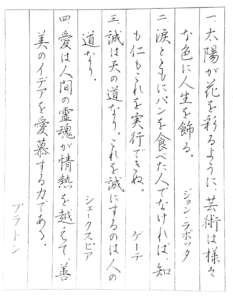 一 太陽が花を彩るように、芸術は様々
な色に人生を飾る。
ジョン・ラボック
二 涙とともにパンを食べた人でなければ、知
も仁もこれを実行できぬ。
ゲーテ
三 誠は天の道なり。これを誠にするのは人の
道なり。
シェークスピア
四 愛は人間の霊魂が情熱を越えて善
美のイデアを愛慕する力である。
プラトン